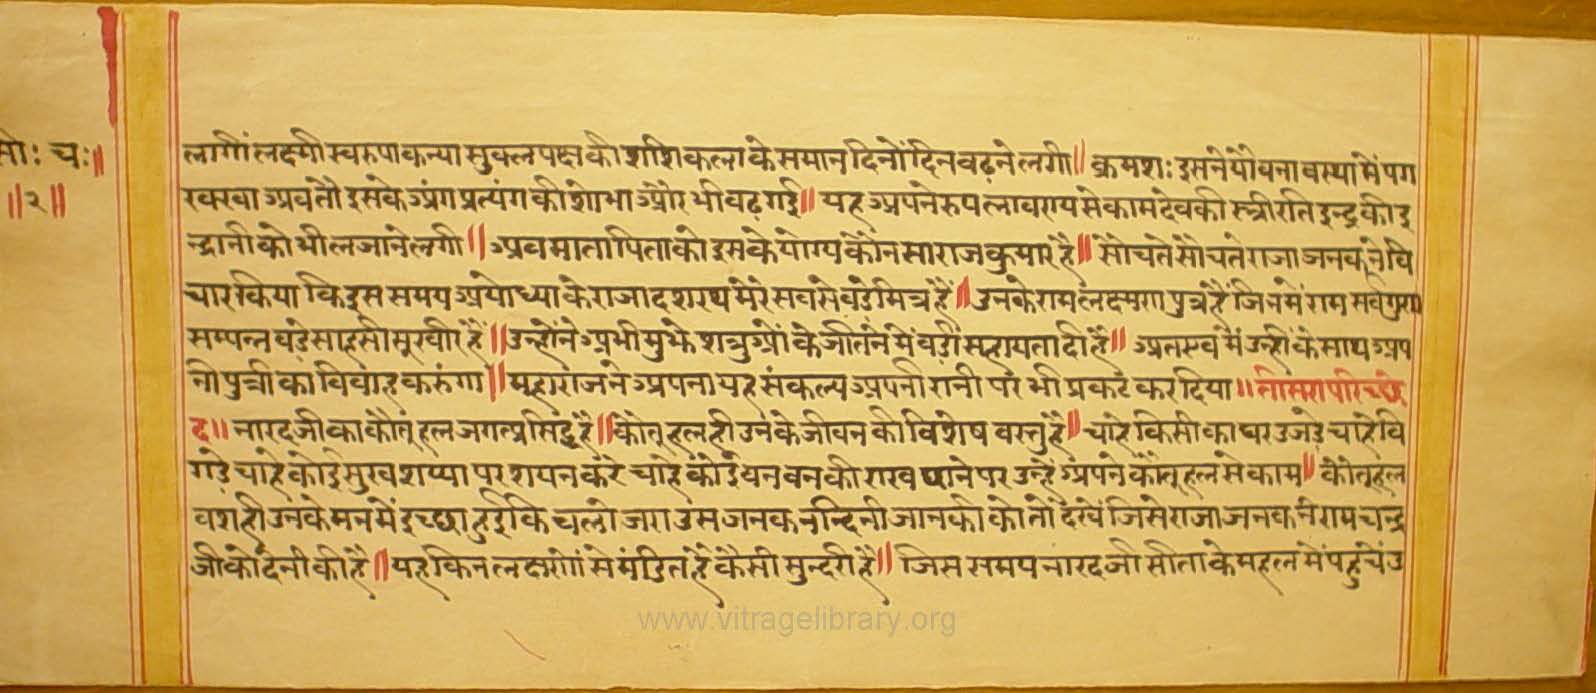 सो: च:॥
॥२॥
लगीं लक्ष्मी स्वरुपा कन्या सुक्ल पक्ष की शशि कला के समान दिनों दिन बढ़ने लगी॥ क्रमश: इसने यौवनावस्था में पग
रक्खा अबतौ इसके अंग प्रत्यंग की शोभा और भी बढ़ गई॥ यह अपने रुप लावण्य से कामदेव की स्त्री रति इन्द्र की इ
न्द्रानी को भी लजाने लगी॥ अब माता पिता को इसके योग्य कौन सा राजकुमार है॥ सोचते सोचते राजा जनक ने वि
चार किया कि इस समय अयोध्या के राजा दशरथ मेरे सबसे बडे मित्र है॥ उनके राम लक्ष्मण पुत्र है जिनमें राम सर्वगुण
सम्पन्न बडे साहसी सूरवीर है॥ उन्होंने अभी मुझे शत्रुओं के जीतने में बडी सहायता दी है॥ अतएव मैं उन्हीं के साथ अप
नी पुत्री का विवाह करुंगा॥ महाराज ने अपना यह संकल्प अपनी रानी पर भी प्रकट कर दिया॥ तीसरा परिच्छे
द॥ नारद जी का कौतूहल जगत्प्रसिद्ध है॥ कौतूहल ही उनके जीवन की विशेष वस्तु है॥ चाहे किसी का घर उजडे चाहे वि
गडे चाहे कोई सुख शय्या पर शयन करे चाहे कोई वन वन की राख छाने पर उन्हे अपने कौतूहल से काम॥ कौतूहल
वश ही उनके मन में इच्छा हुई कि चलो जरा उस जनक नन्दिनी जानकी को तो देखें जिसे राजा जनक ने रामचन्द्र
जी को देनी की है॥ वह किन लक्षणों से मंडित है कैसी सुन्दरी है॥ जिस समय नारद जी सीता के महल में पहुचे उ
www.vitragelibrary.org